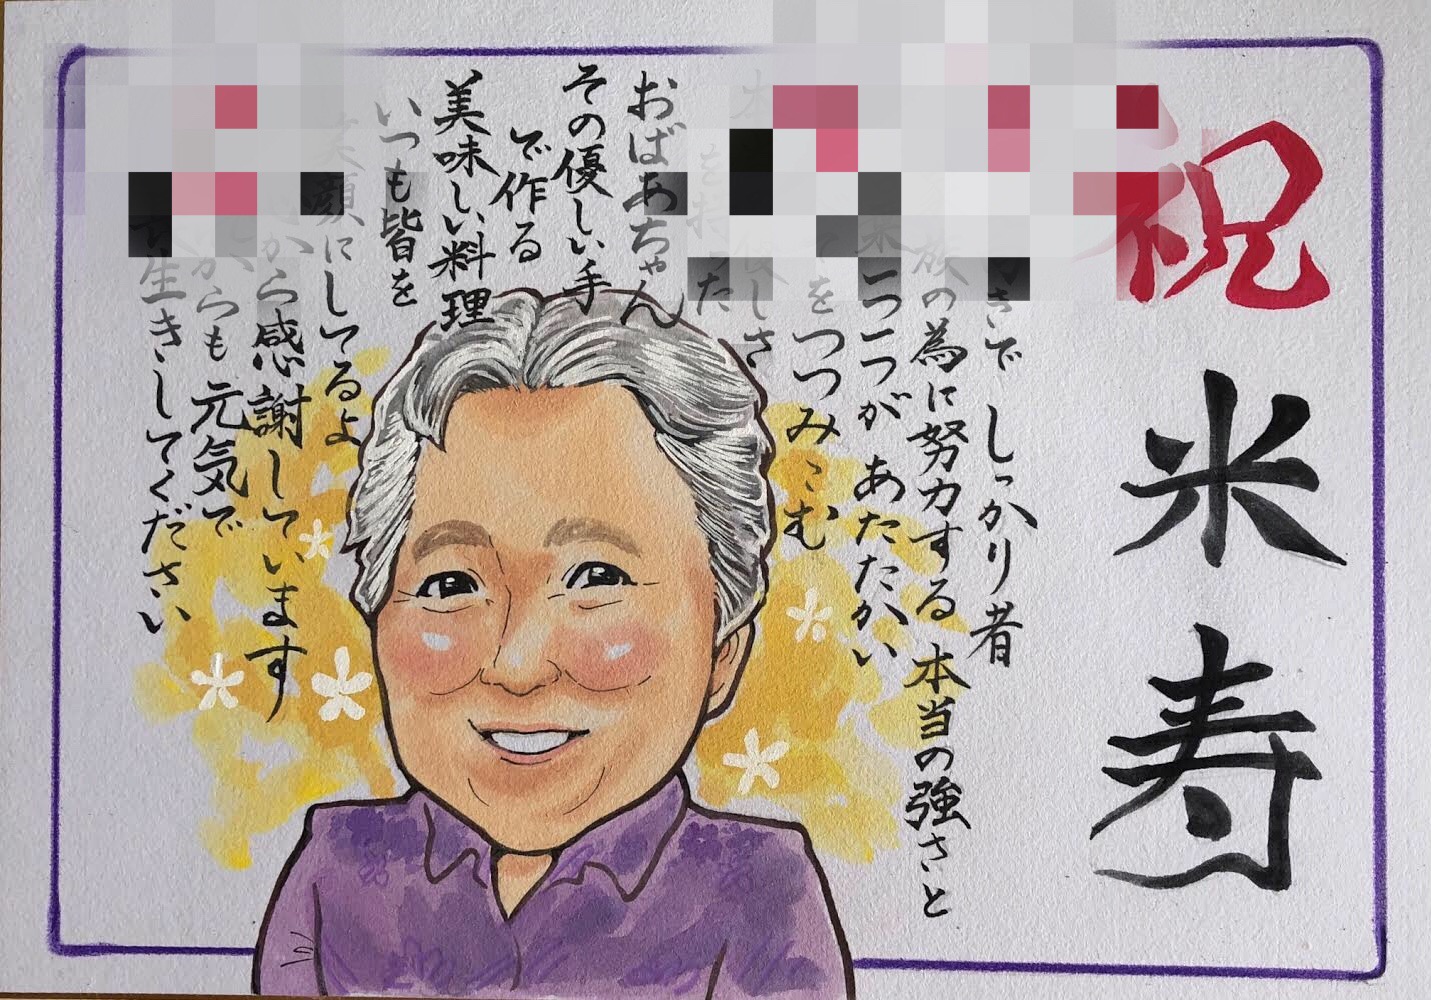 祝
米寿
きで しっかり者
族の為に努力する 本当の強さと
一つ一つが あたたかい
をつつみこむ
しさ
を持った
おばあちゃん
その優しい手
で作る
美味しい料理
いつも皆を
笑顔にしてるよ
から感謝しています
からも元気で
生きしてください